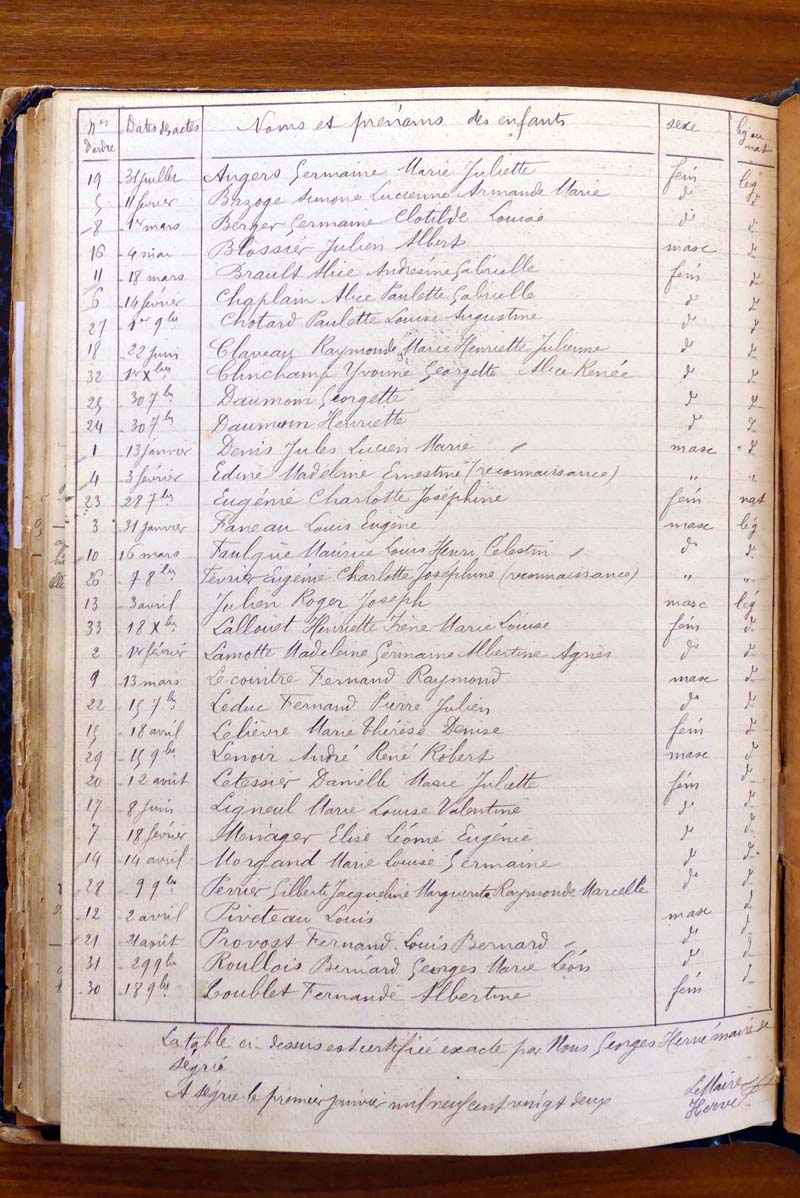 Nos d'ordre Dates des actes Noms et prénoms des enfants sexe lég ou nat
19 31 juillet Angers Germaine Marie Juliette fém lég
5 11 février Bazoge Simone Lucienne Armande Marie do do
8 1er mars Berger Germaine Clotilde Louise do do
16 4 mai Blossier Julien Albert masc do
11 18 mars Brault Alice Andrésine Gabrielle fém do
6 14 février Chaplain Alice Paulette Gabrielle do do
27 1er 9bre Chotard Paulette Louise Augustine do do
18 22 juin Claveau Raymonde Marie Henriette Julienne do do
32 1er Xbre Clinchamp Yvonne Georgette Alice Renée do do
25 30 7bre Daumoin Georgette do do
24 30 7bre Daumoin Henriette do do
1 13 janvier Denis Jules Lucien Marie masc do
4 3 février Edine Madeleine Ernestine (reconnaissance) " "
23 28 7bre Eugénie Charlotte Joséphine fém nat
3 31 janvier Faneau Louis Eugène masc lég
10 16 mars Faulque Maurice Louis Henri Célestin do do
26 7 8bre Février Eugénie Charlotte Joséphine (reconnaissance) " "
13 3 avril Julien Roger Joseph masc lég
33 18 Xbre Lallouet Henriette Irène Marie Louise fém do
2 1er février Lamotte Madeleine Germaine Albertine Agnès do do
9 13 mars Lecointre Fernand Raymond masc do
22 15 7bre Leduc Fernand Pierre Julien do do
15 18 avril Lelièvre Marie Thérèse Denise fém do
29 15 9bre Lenoir André René Robert masc do
20 12 août Letessier Danielle Marie Juliette fém do
17 8 juin Ligneul Marie Louise Valentine do do
7 18 février Ménager Elise Léonie Eugénie do do
14 14 avril Morgand Marie Louise Germaine do do
28 9 9bre Perrier Gilberte Jacqueline Marguerite Raymonde Marcelle do do
12 2 avril Piveteau Louis masc do
21 21 août Provost Fernand Louis Bernard do do
31 29 9bre Roullois Bernard Georges Marie Léon do do
30 18 9bre Loublet Fernande Albertine fém do
La table ci-dessus est certifiée exacte par Nous Georges Hervé maire de
Ségrie
A Ségrie le premier janvier mil neuf cent vingt deux
Le Maire
Hervé